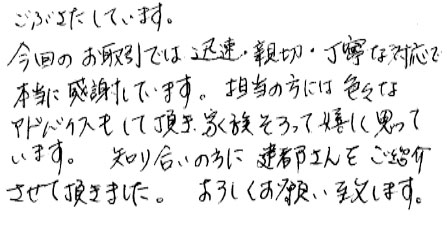 ごぶさたしています。
今回のお取引では迅速・親切・丁寧な対応で
本当に感謝しています。担当の方には色々な
アドバイスもして頂き、家族そろって嬉しく思って
います。 知り合いの方に建都さんをご紹介
させて頂きました。 よろしくお願い致します。